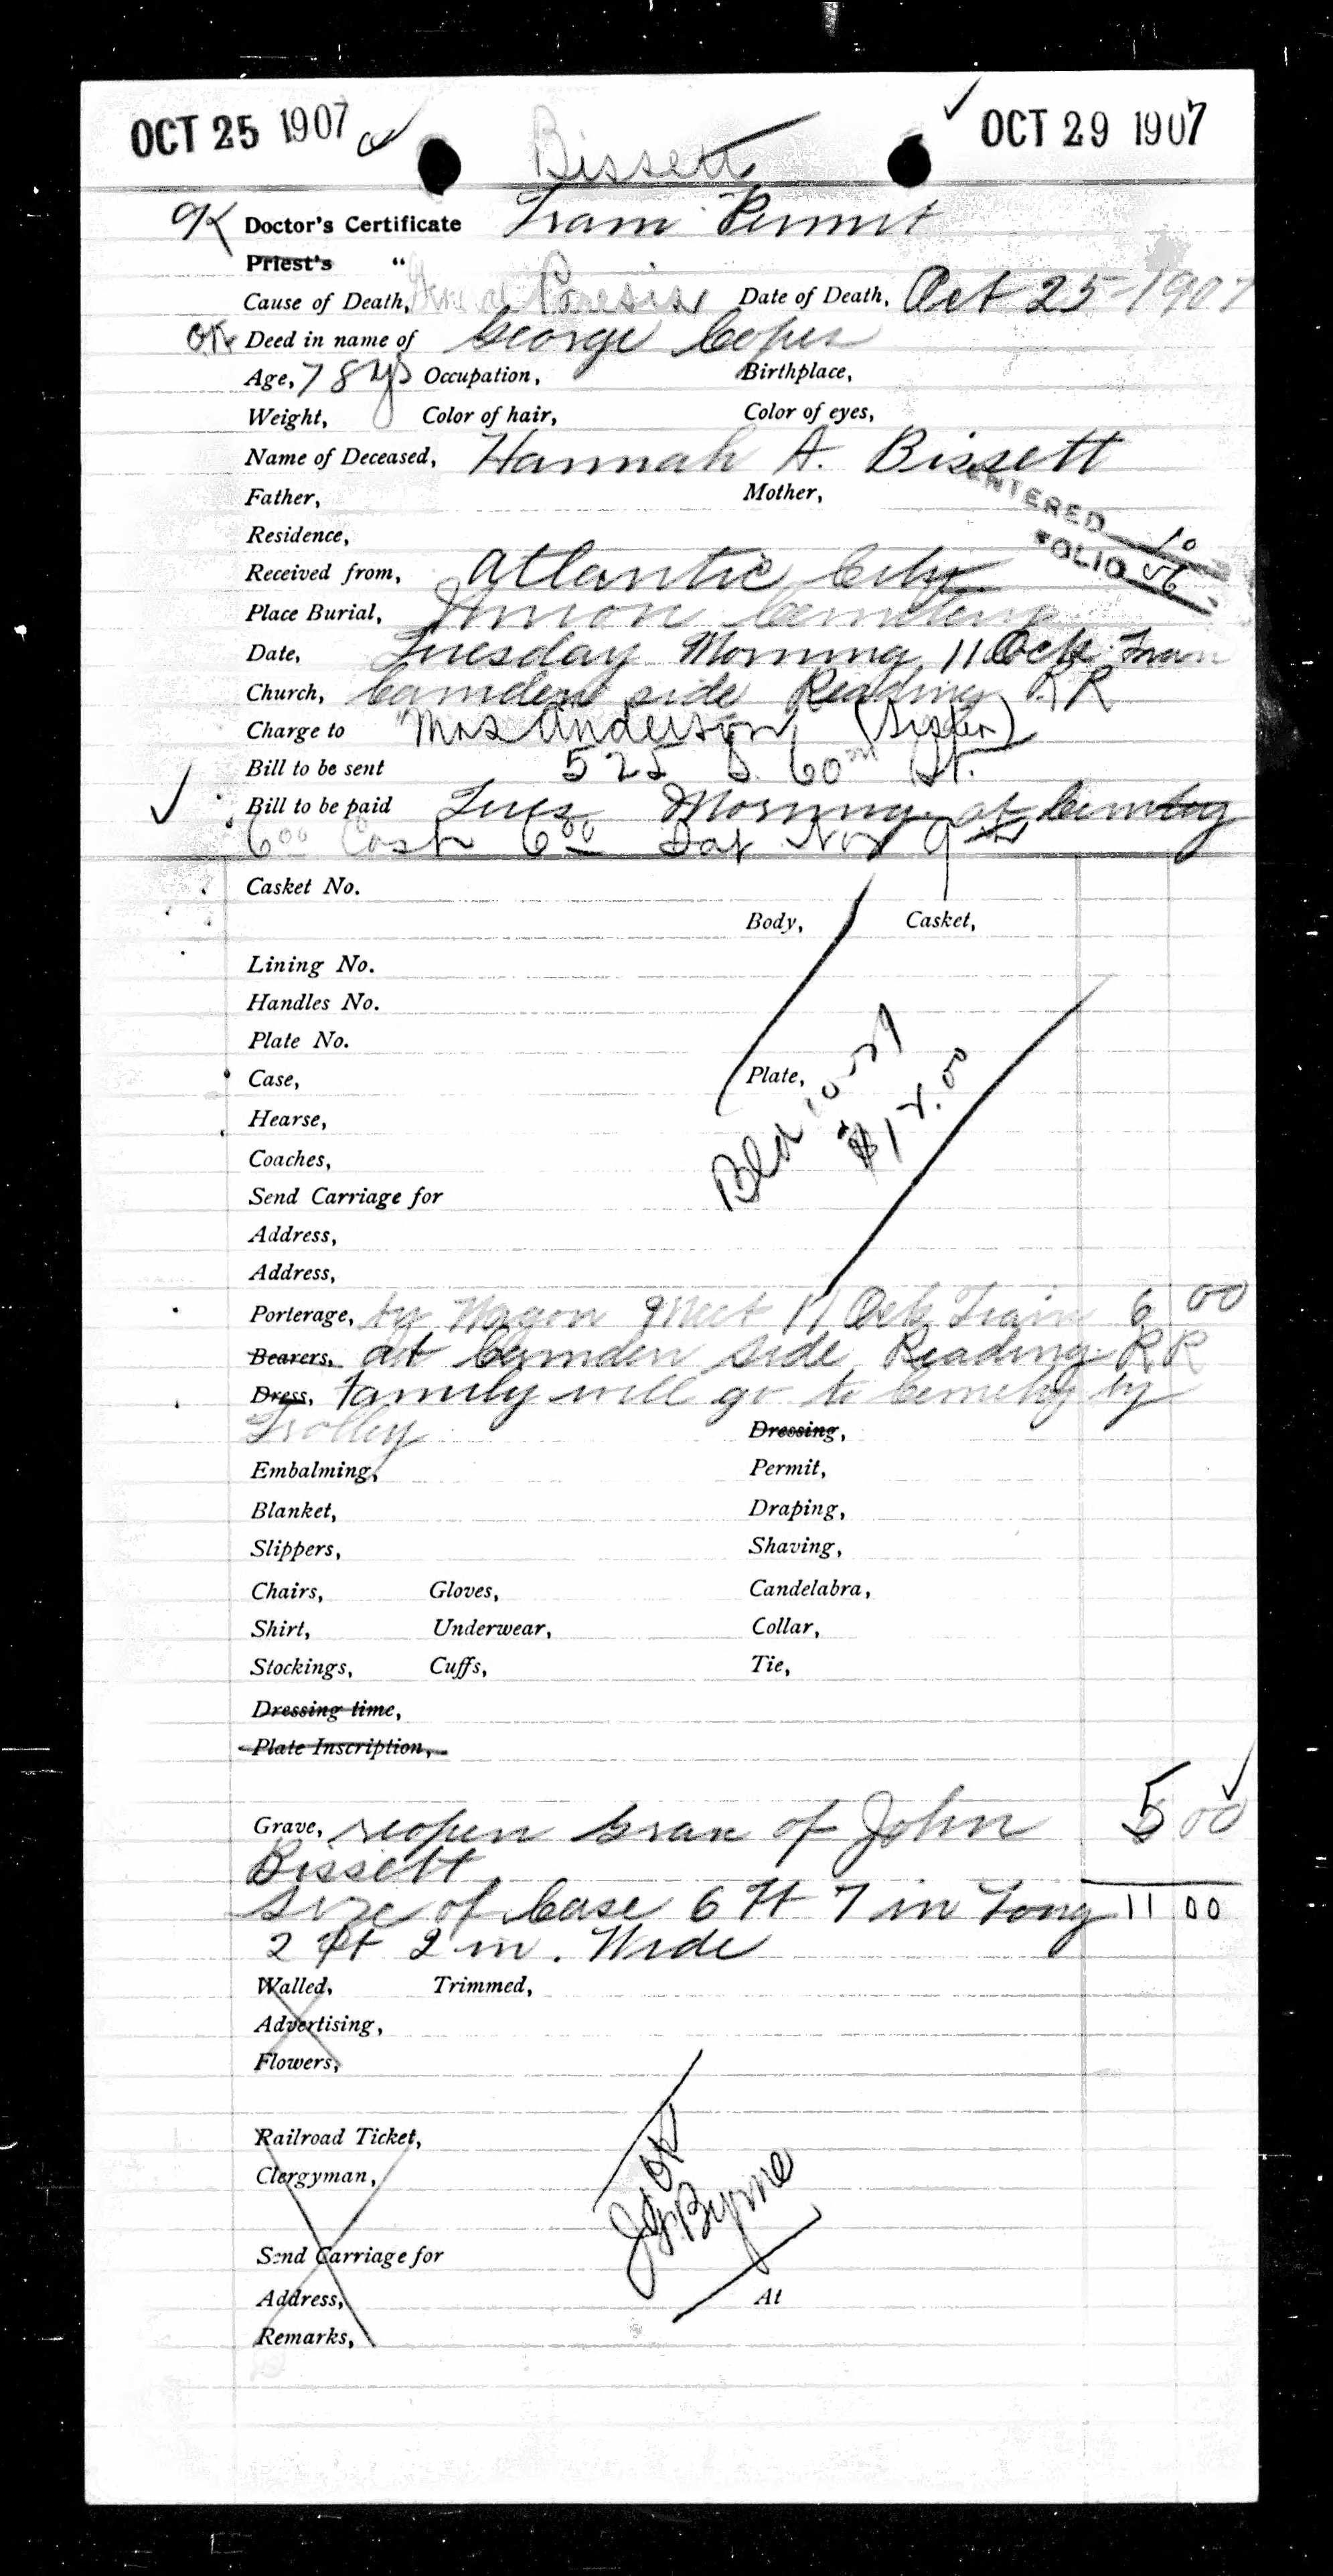 OCT 25 1907
OCT 29 1907
Bissett
OK Doctor's Certificate Tran Permit
Priest's "
Cause of Death, Paresis Date of Death, Oct 25-1907
OK Deed in name of George Coper
Age, 78 ys Occupation, Birthplace,
Weight, Color of hair, Color of eyes,
Name of Deceased, Hannah A. Bissett
Father, Mother,
ENTERED 10
Residence,
FOLIO 56
Received from, Atlantic City
Place Burial, Union Cemetery
Date, Tuesday Morning 11 Ock Train
Church, Camden side Reading RR
Charge to Mrs Anderson (Sister)
Bill to be sent 525 S. 60th St.
Bill to be paid Tues Morning at Cemetery
6 00 Cash 6 00 Sat Nov 9th
Casket No.
Body, Casket,
Lining No.
Handles No.
Plate No.
Case, Plate,
Hearse,
Coaches,
Bld
Send Carriage for
Address,
Address,
Porterage, by Wagon Meet 11 Ock Train 6 00
Bearers, at Camden side Reading RR
Dress, family will go to Cemetry by
Trolley Dressing,
Embalming, Permit,
Blanket, Draping,
Slippers, Shaving,
Chairs, Gloves, Candelabra,
Shirt, Underwear, Collar,
Stockings, Cuffs, Tie,
Dressing time,
Plate Inscription,
Grave, reopen Grave of John 5 00
Bissett
Size of Case 6 ft 7 in Long 11 00
2 ft 2 in. Wide
Walled, Trimmed,
Advertising,
Flowers,
Railroad Ticket,
Clergyman,
OK
J G Byrne
Send Carriage for
Address, At
Remarks,